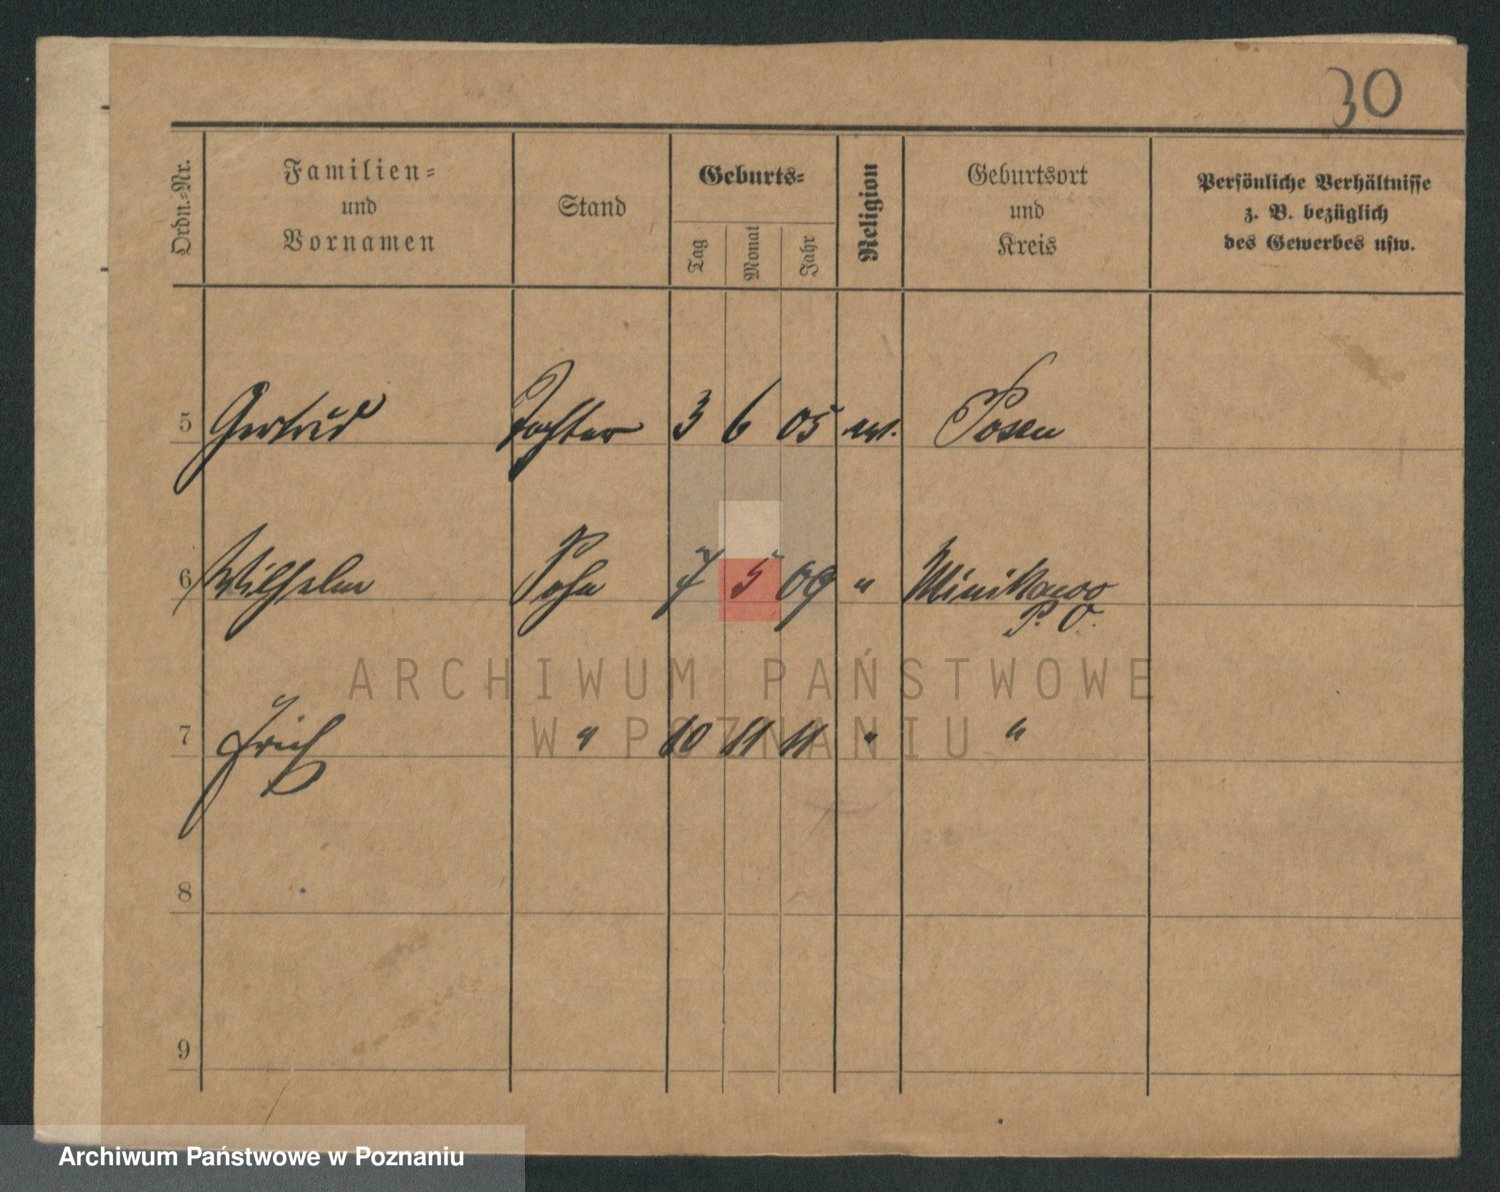 30
Ordn.-Nr.
Familien-
und
Vornamen
Stand
Geburts-
Tag
Monat
Jahr
Religion
Geburtsort
und
Kreis
Persönliche Verhältnisse
z. B. bezüglich
des Gewerbes usw.
5 Gertrud Tochter 3 6 05 Posen
6 Wilhelm Sohn 7 5 09 " Minikowo
P. O.
7 Erich " 10 11 11 " "
8
9
ARCHIWUM PAŃSTWOWE
W POZNANIU
Archiwum Państwowe w Poznaniu